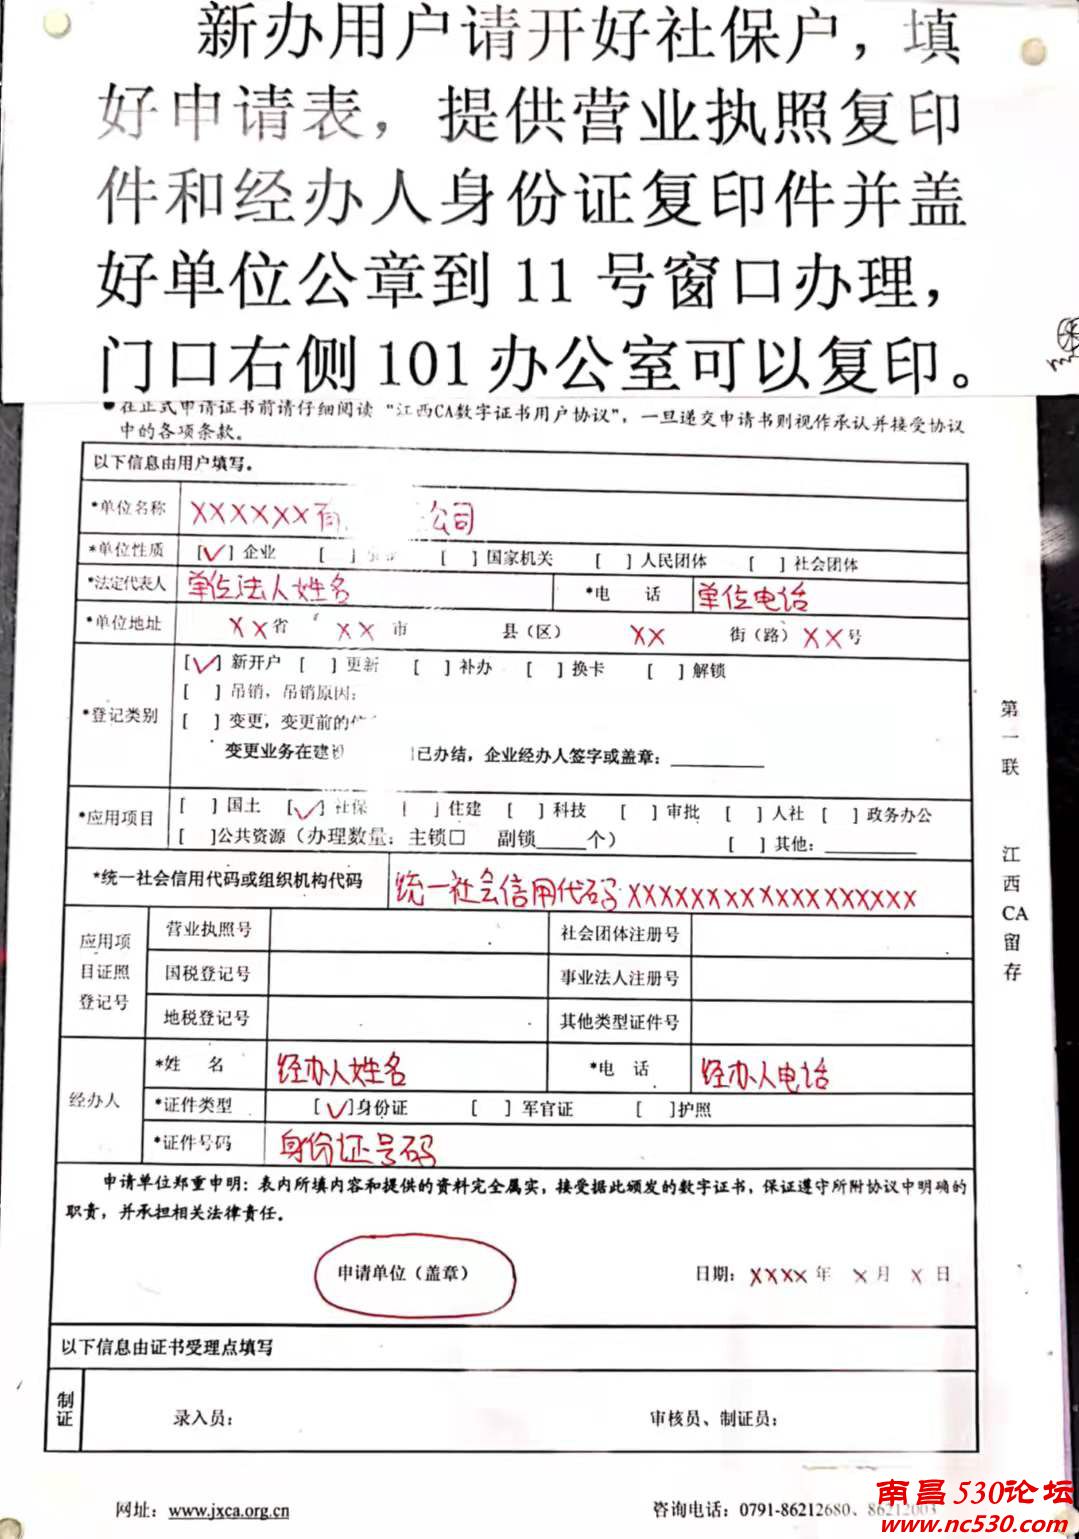 新办用户请开好社保户，填
好申请表，提供营业执照复印
件和经办人身份证复印件并盖
好单位公章到 11 号窗口办理，
门口右侧 101 办公室可以复印。
●在正式申请证书前请仔细阅读“江西CA数字证书用户协议”，一旦递交申请书则视作承认并接受协议
中的各项条款。
以下信息由用户填写。
*单位名称 XXXXXX有 公司
*单位性质 [✓] 企业 [ ] [ ] 国家机关 [ ] 人民团体 [ ] 社会团体
*法定代表人 单位法人姓名 *电 话 单位电话
*单位地址 XX省 XX市 县（区） XX 街（路）XX号
*登记类别 [✓] 新开户 [ ] 更新 [ ] 补办 [ ] 换卡 [ ] 解锁
[ ] 吊销，吊销原因：
[ ] 变更，变更前的
变更业务在建设 已办结，企业经办人签字或盖章：
*应用项目 [ ] 国土 [✓] 社保 [ ] 住建 [ ] 科技 [ ] 审批 [ ] 人社 [ ] 政务办公
[ ]公共资源（办理数量：主锁□ 副锁____个） [ ] 其他：
*统一社会信用代码或组织机构代码 统一社会信用代码XXXXXXXXXXXXXXXXXX
应用项目证照登记号 营业执照号 社会团体注册号
国税登记号 事业法人注册号
地税登记号 其他类型证件号
经办人 *姓 名 经办人姓名 *电 话 经办人电话
*证件类型 [✓]身份证 [ ] 军官证 [ ]护照
*证件号码 身份证号码
申请单位郑重申明：表内所填内容和提供的资料完全属实，接受据此颁发的数字证书，保证遵守所附协议中明确的
职责，并承担相关法律责任。
申请单位（盖章） 日期：XXXX年 X月 X日
以下信息由证书受理点填写
制证 录入员： 审核员、制证员：
第一联 江西CA留存
网址：www.jxca.org.cn 咨询电话：0791-86212680、86212003
南昌530论坛
www.nc530.com